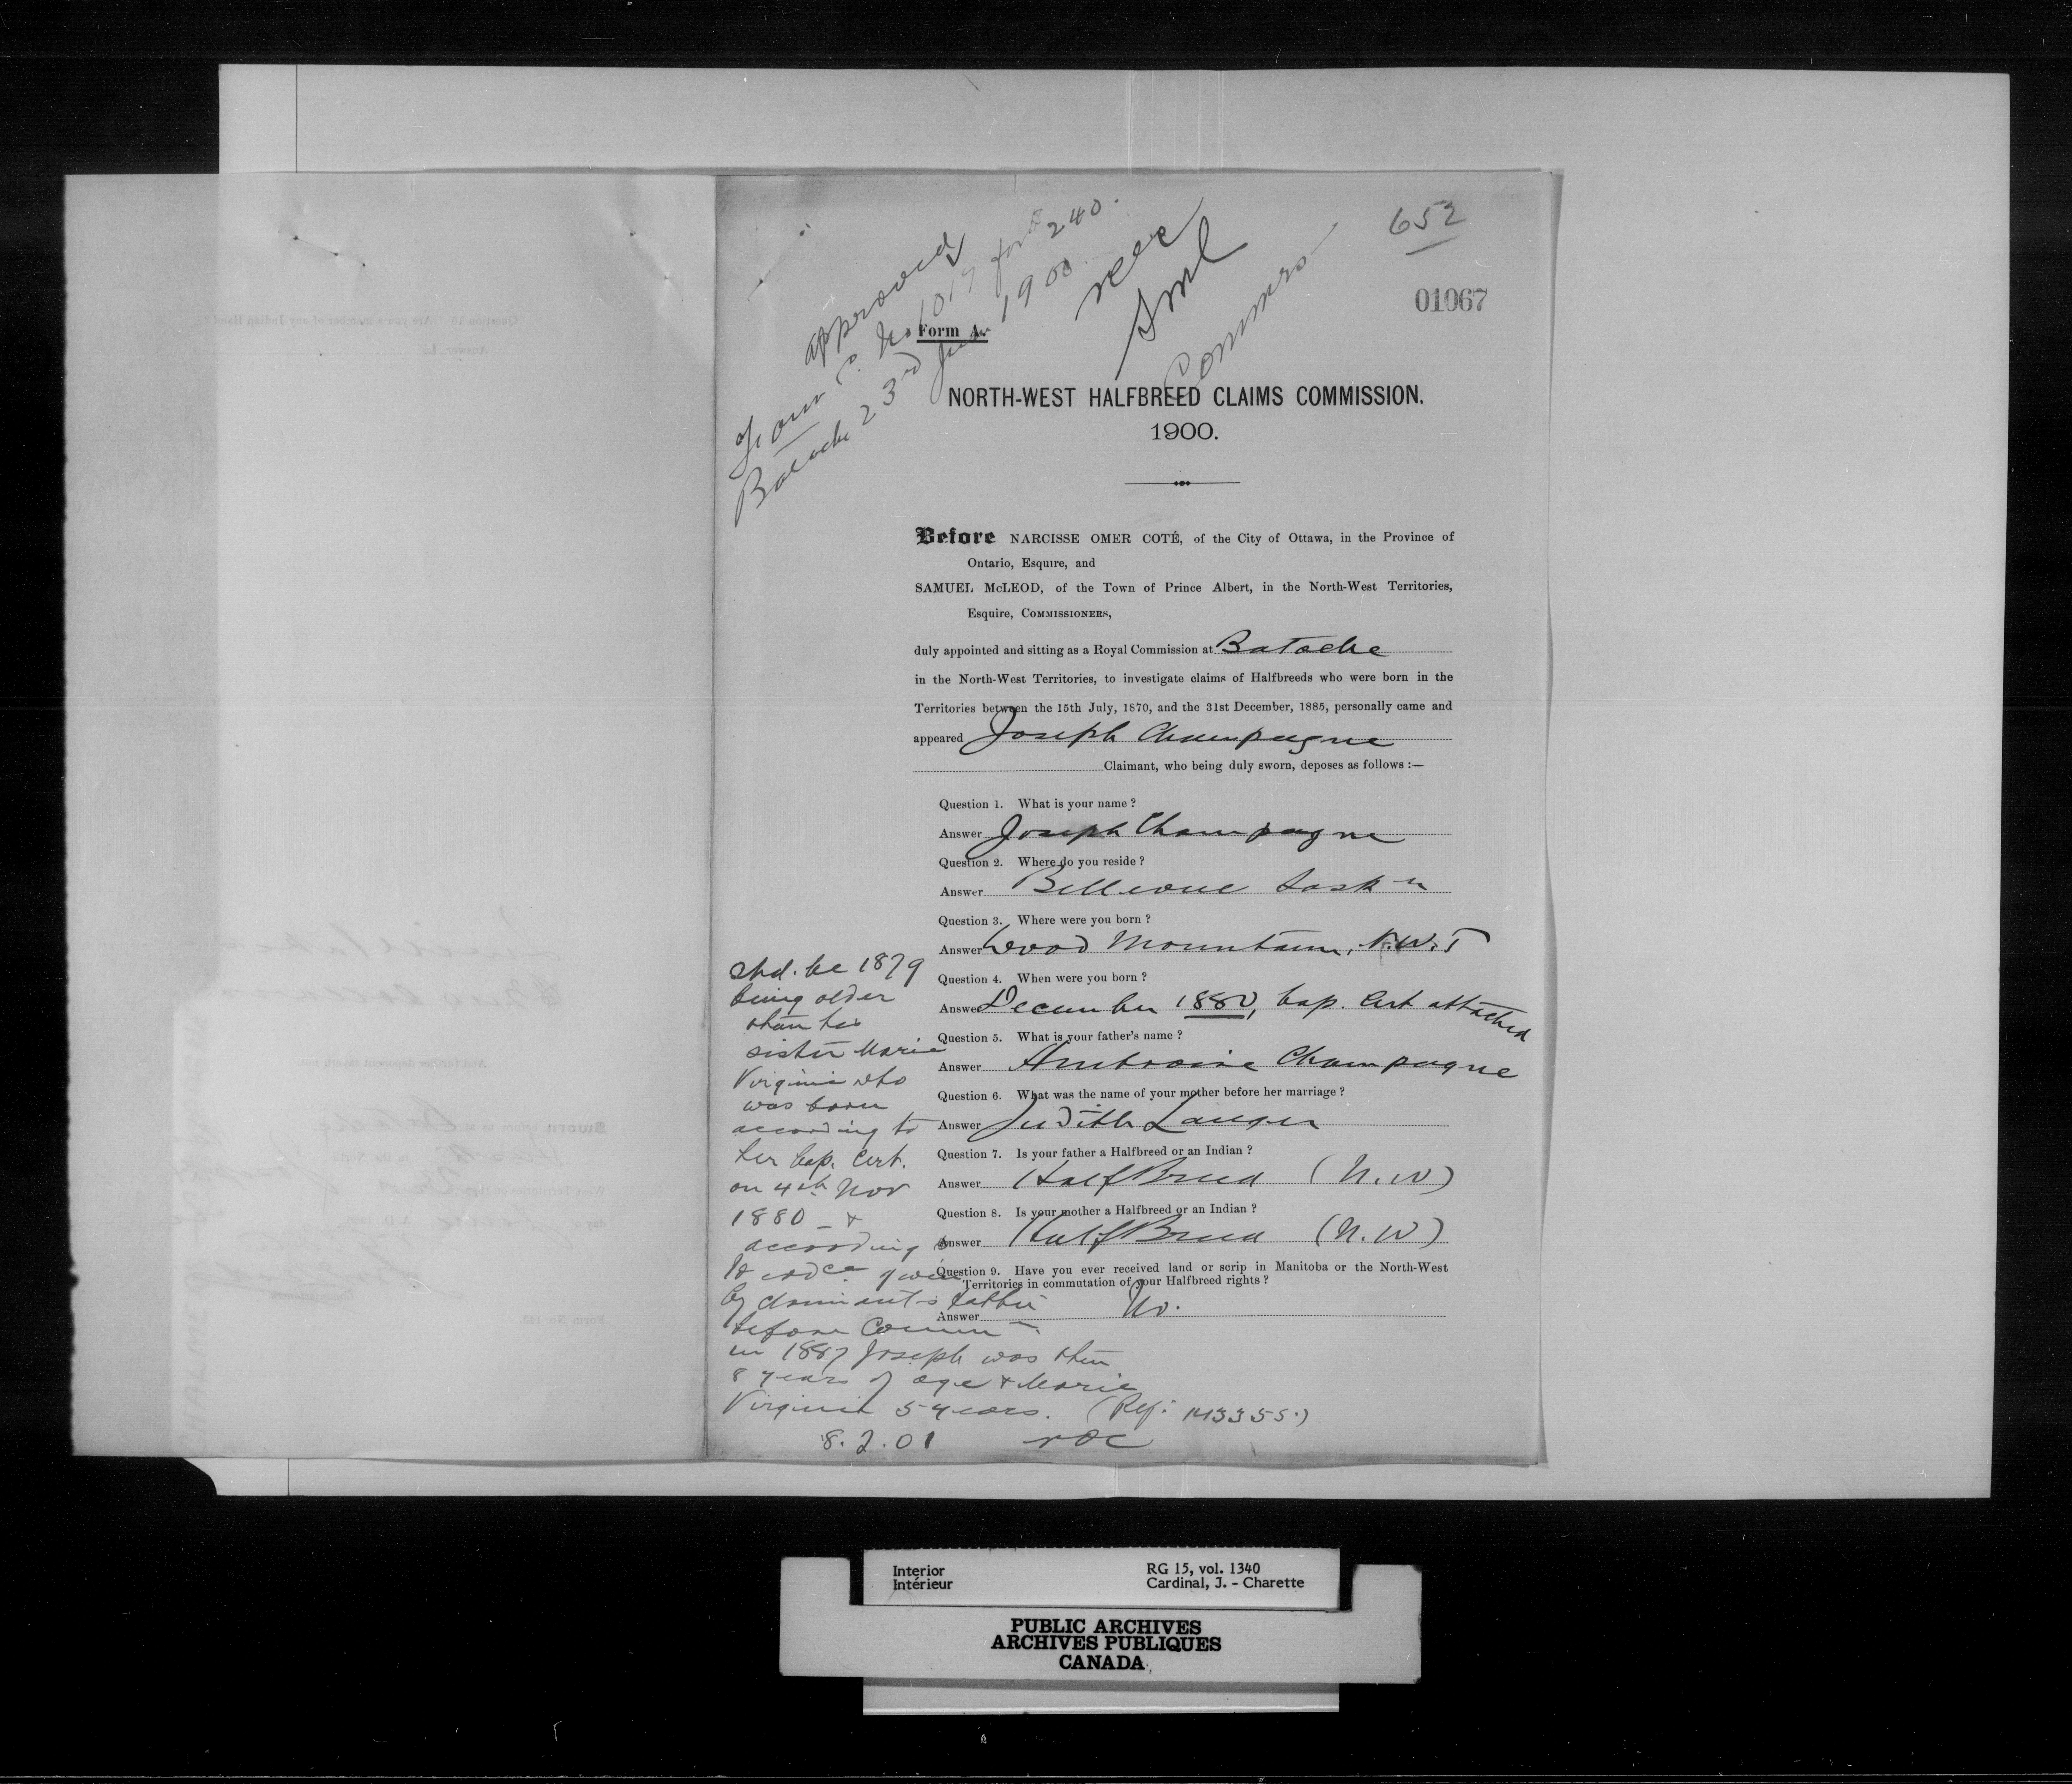 652
01067
approved
Form C. No 1017 for $240.
Batoche 23rd June 1900
NOC
SML
Commrs
Form A.
NORTH-WEST HALFBREED CLAIMS COMMISSION.
1900.
Before NARCISSE OMER COTÉ, of the City of Ottawa, in the Province of
Ontario, Esquire, and
SAMUEL McLEOD, of the Town of Prince Albert, in the North-West Territories,
Esquire, COMMISSIONERS,
duly appointed and sitting as a Royal Commission at Batoche
in the North-West Territories, to investigate claims of Halfbreeds who were born in the
Territories between the 15th July, 1870, and the 31st December, 1885, personally came and
appeared Joseph Champagne
Claimant, who being duly sworn, deposes as follows :—
Question 1. What is your name ?
Answer Joseph Champagne
Question 2. Where do you reside ?
Answer Bellevue Sask n
Question 3. Where were you born ?
Answer Wood Mountain, N.W.T
Question 4. When were you born ?
Answer December 1880, bap. Cert attached
Question 5. What is your father's name ?
Answer Ambroise Champagne
Question 6. What was the name of your mother before her marriage ?
Answer Judith Langer
Question 7. Is your father a Halfbreed or an Indian ?
Answer Half Breed (N.W)
Question 8. Is your mother a Halfbreed or an Indian ?
Answer Half Breed (N.W)
Question 9. Have you ever received land or scrip in Manitoba or the North-West
Territories in commutation of your Halfbreed rights ?
Answer No.
shd. be 1879
being older
than his
sister Marie
Virginie who
was born
according to
her bap. Cert.
on 4th Nov
1880 _ &
according
to evdce given
by claimant's father
before Commn
in 1887 Joseph was then
8 years of age & Marie
Virginie 5 years. (Ref: 143355.)
8.2.01 NOC
Interior
Intérieur
RG 15, vol. 1340
Cardinal, J. - Charette
PUBLIC ARCHIVES
ARCHIVES PUBLIQUES
CANADA